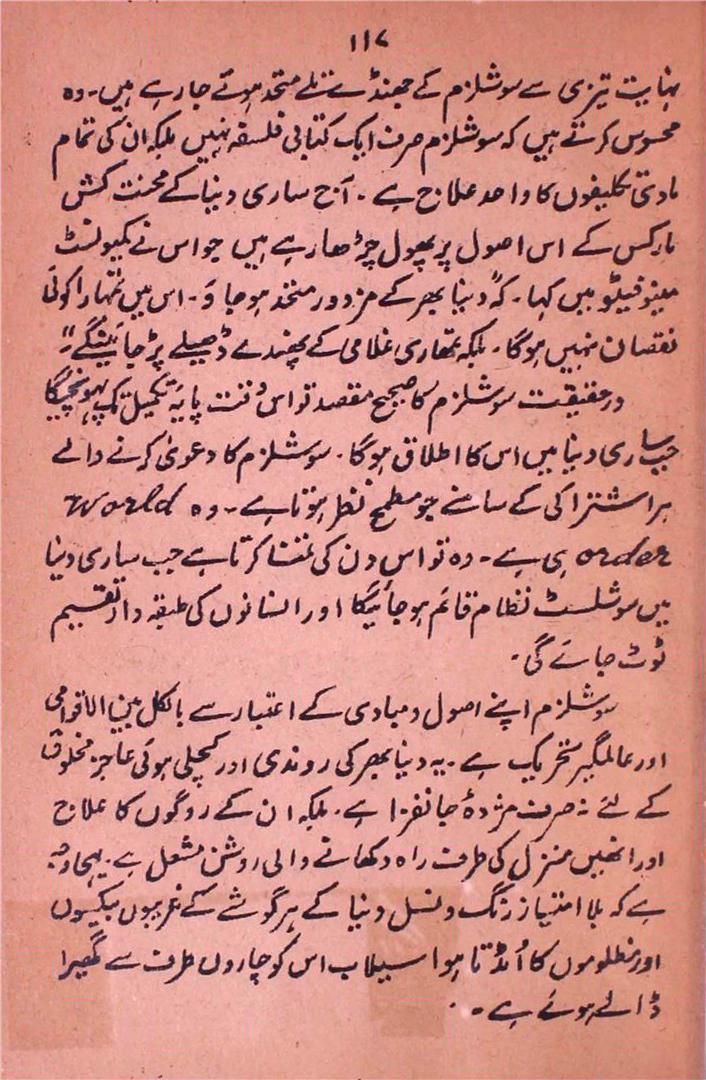 ۱۱۷
نہایت تیزی سے سوشلزم کے جھنڈے تلے متحد ہوتے جا رہے ہیں۔ وہ
محسوس کرتے ہیں کہ سوشلزم صرف ایک کتابی فلسفہ نہیں بلکہ ان کی تمام
مادی تکلیفوں کا واحد علاج ہے۔ آج ساری دنیا کے محنت کش
مارکس کے اس اصول پر پھول چڑھا رہے ہیں جو اس نے کمیونسٹ
مینوفیٹو میں کہا۔ کہ "دنیا بھر کے مزدور متحد ہو جاؤ۔ اس میں تمہارا کوئی
نقصان نہیں ہوگا۔ بلکہ تمھاری غلامی کے پھندے ڈھیلے پڑ جائینگے"
درحقیقت سوشلزم کا صحیح مقصد تو اس وقت پایۂ تکمیل تک پہونچیگا
جب ساری دنیا میں اس کا اطلاق ہوگا۔ سوشلزم کا دعویٰ کرنے والے
ہر اشتراکی کے سامنے جو مطمح نظر ہوتا ہے۔ وہ World
order ہی ہے۔ وہ تو اس دن کی تمنا کرتا ہے جب ساری دنیا
میں سوشلسٹ نظام قائم ہو جائیگا اور انسانوں کی طبقہ دار تقسیم
ٹوٹ جائے گی۔
سوشلزم اپنے اصول و مبادی کے اعتبار سے بالکل بین الاقوامی
اور عالمگیر تحریک ہے۔ یہ دنیا بھر کی روندی اور کچلی ہوئی عاجز مخلوق
کے لئے نہ صرف مژدۂ جانفزا ہے۔ بلکہ ان کے روگوں کا علاج
اور انھیں منزل کی طرف راہ دکھانے والی روشن مشعل ہے۔ یہی وجہ
ہے کہ بلا امتیاز رنگ و نسل دنیا کے ہر گوشے کے غریبوں بیکسوں
اور مظلوموں کا اُمڈتا ہوا سیلاب اس کو چاروں طرف سے گھیرا
ڈالے ہوئے ہے۔